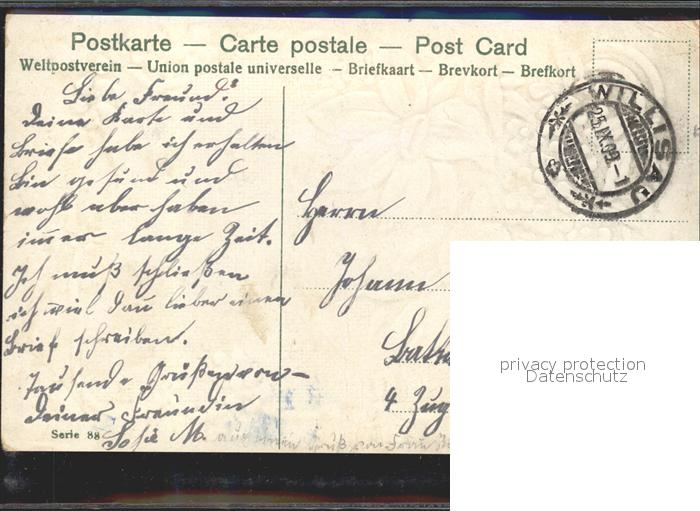 Postkarte — Carte postale — Post Card
Weltpostverein — Union postale universelle — Briefkaart — Brevkort — Brefkort
WILLISAU
25.IX.09.
Liebe Freund.
Deine Karte und
Briefe habe ich erhalten
bin gesund und
wohl aber haben
immer lange Zeit.
Ich muß schließen
ich will dan lieber einen
Brief schreiben.
Tausend Grüße von
Deiner Freundin
M.
Herrn
Johann
4 Zug
Serie 88
privacy protection
Datenschutz